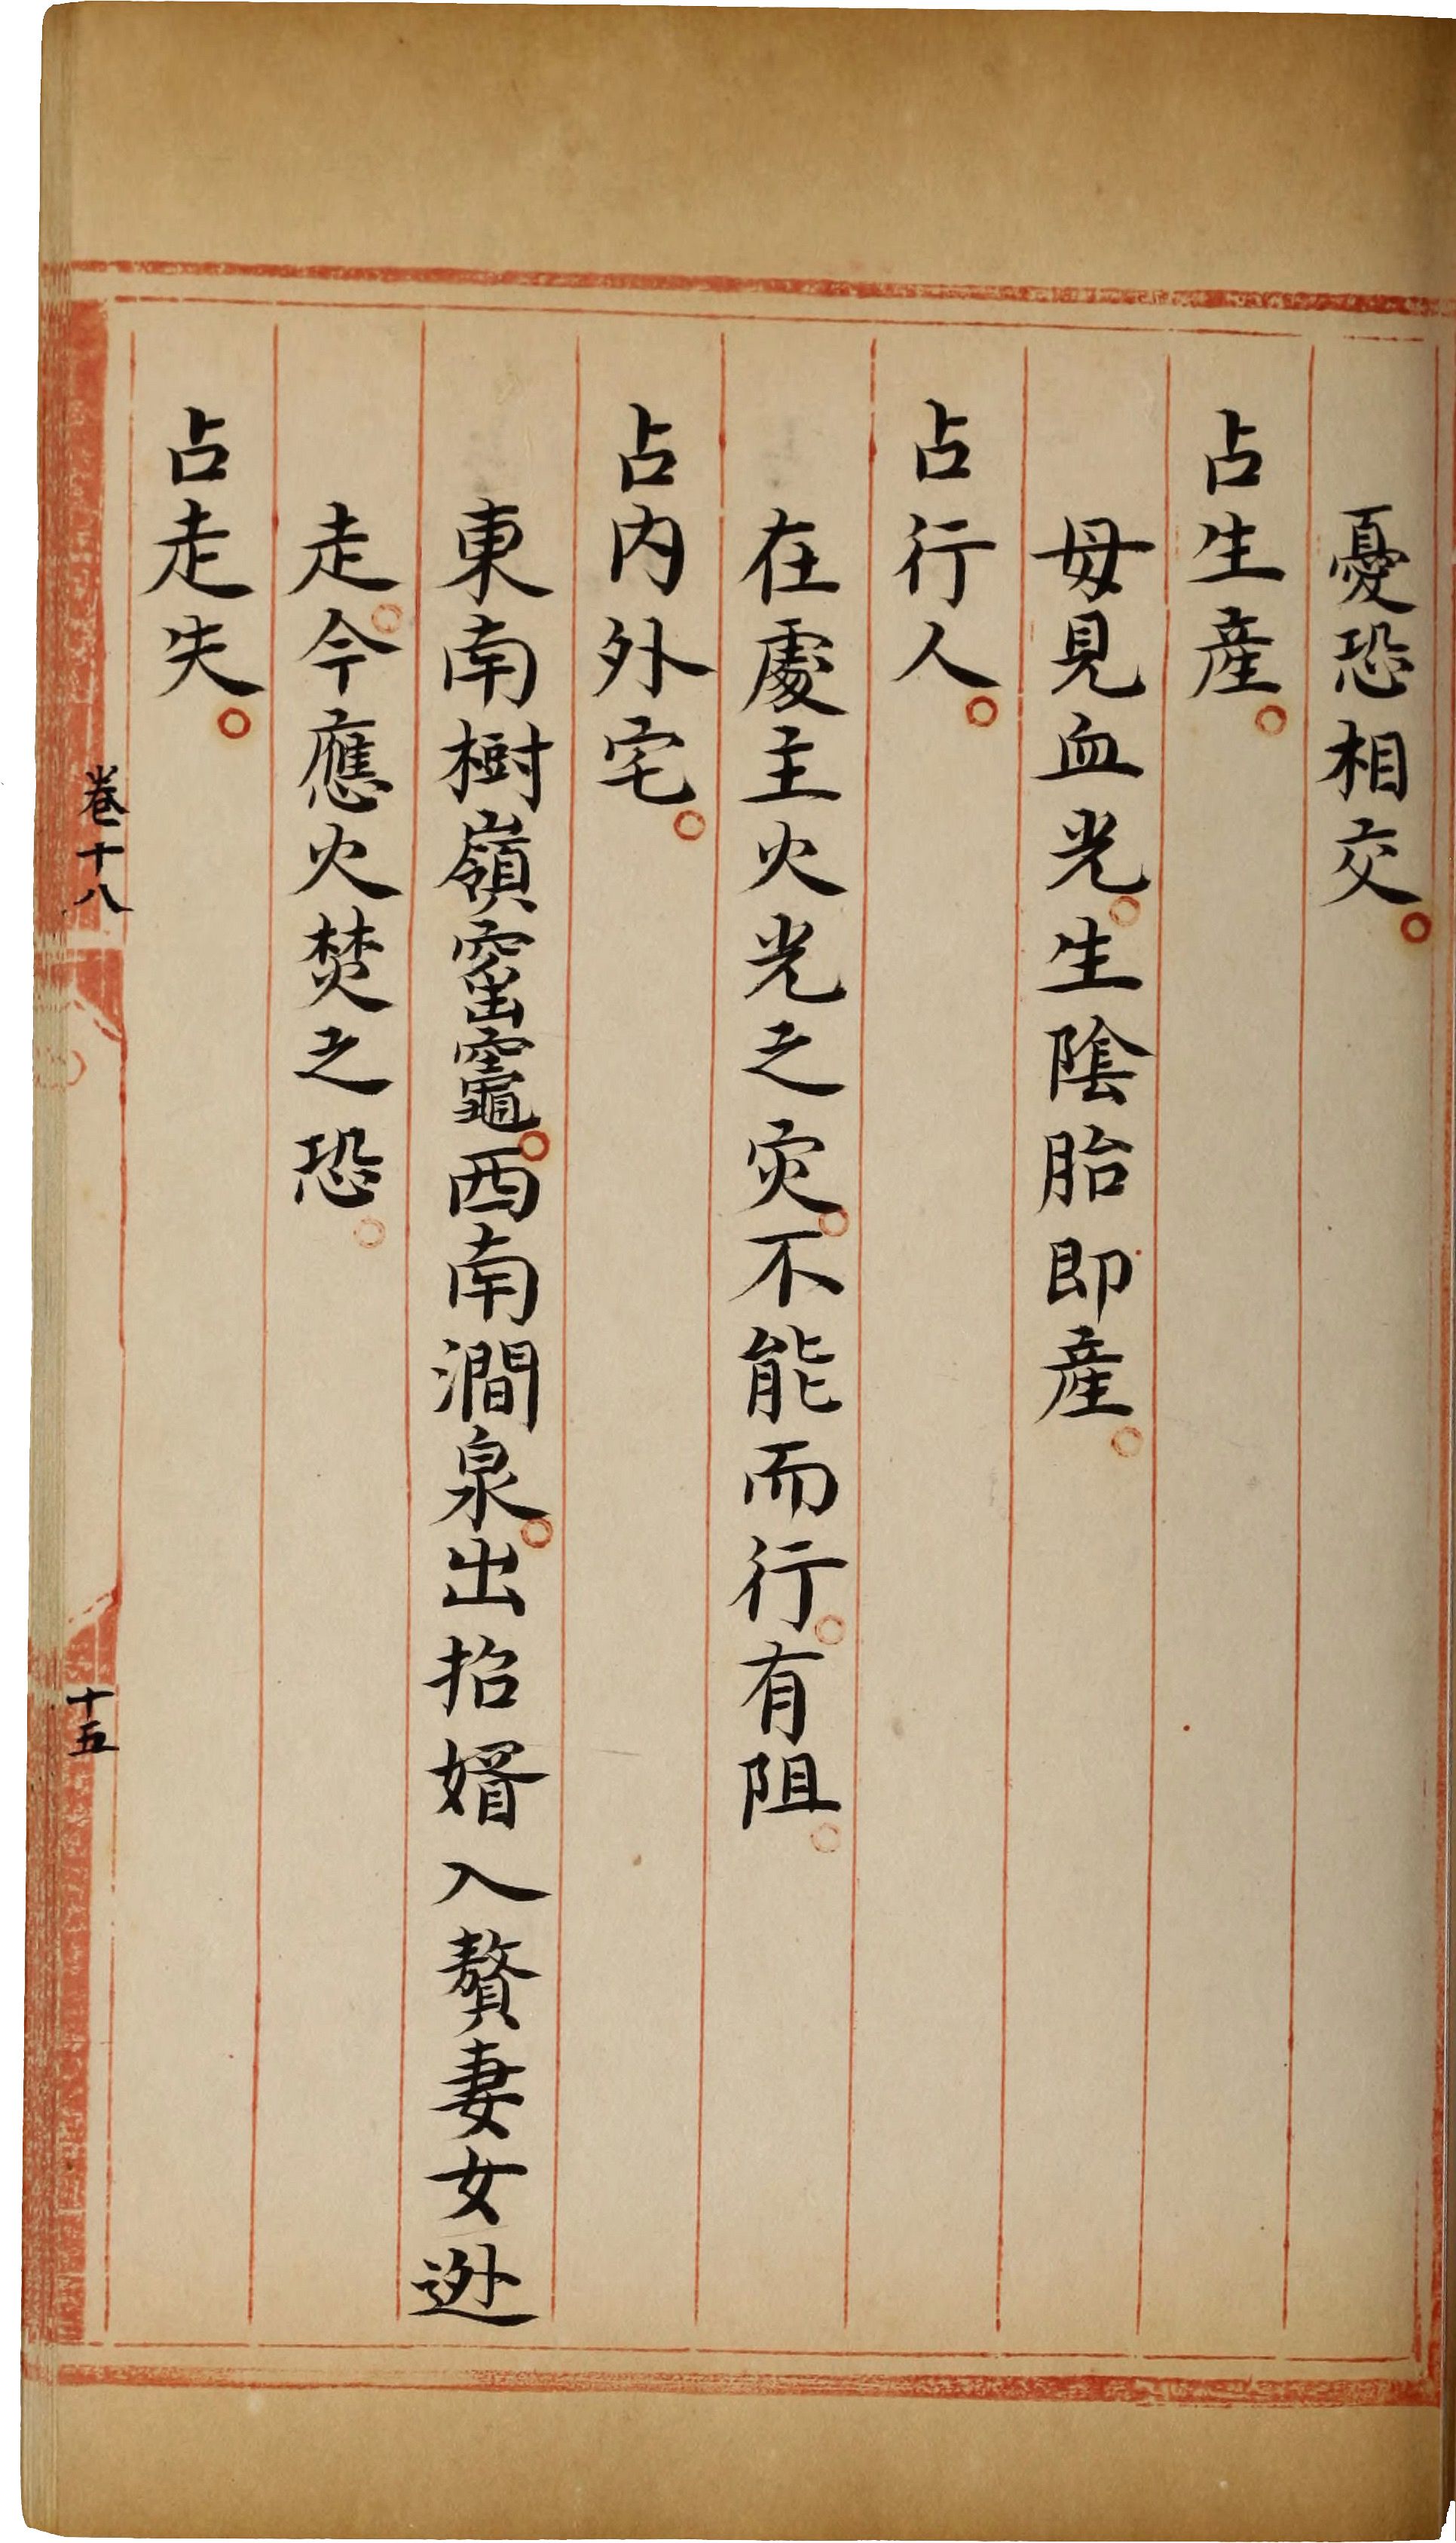 憂恐相交。
占生產。
母見血光。生陰胎即產。
占行人。
在處主火光之灾。不能而行。有阻。
占内外宅。
東南樹嶺窑竈。西南澗泉。出招婿入贅妻女逃
走。今應火焚之恐。
占走失。
卷十八
十五